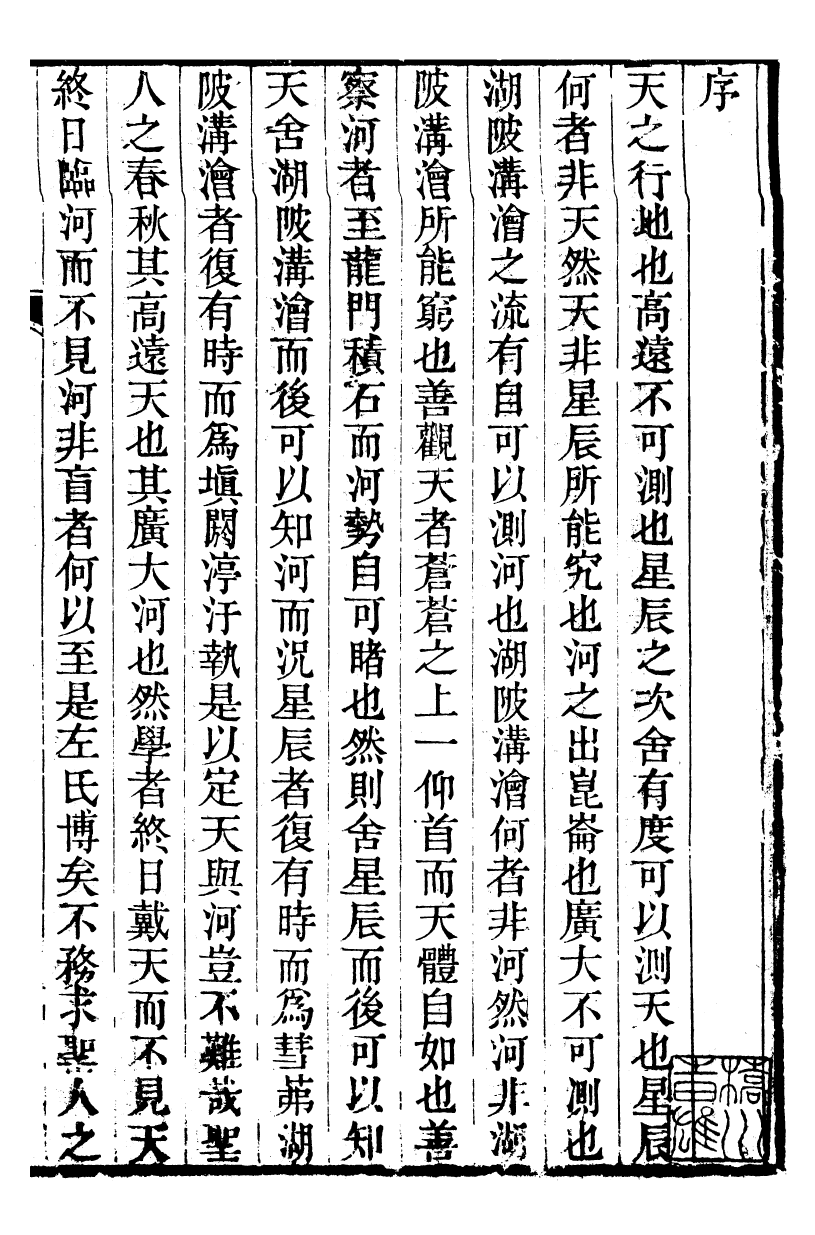 序
天之行地也高遠不可測也星辰之次舍有度可以測天也星辰
何者非天然天非星辰所能究也河之出崑崙也廣大不可測也
湖陂溝澮之流有自可以測河也湖陂溝澮何者非河然河非湖
陂溝澮所能窮也善觀天者蒼蒼之上一仰首而天體自如也善
察河者至龍門積石而河勢自可睹也然則舍星辰而後可以知
天舍湖陂溝澮而後可以知河而況星辰者復有時而爲彗茀湖
陂溝澮者復有時而爲塡閼渟汙執是以定天與河豈不難哉聖
人之春秋其高遠天也其廣大河也然學者終日戴天而不見天
終日臨河而不見河非盲者何以至是左氏博矣不務求聖人之